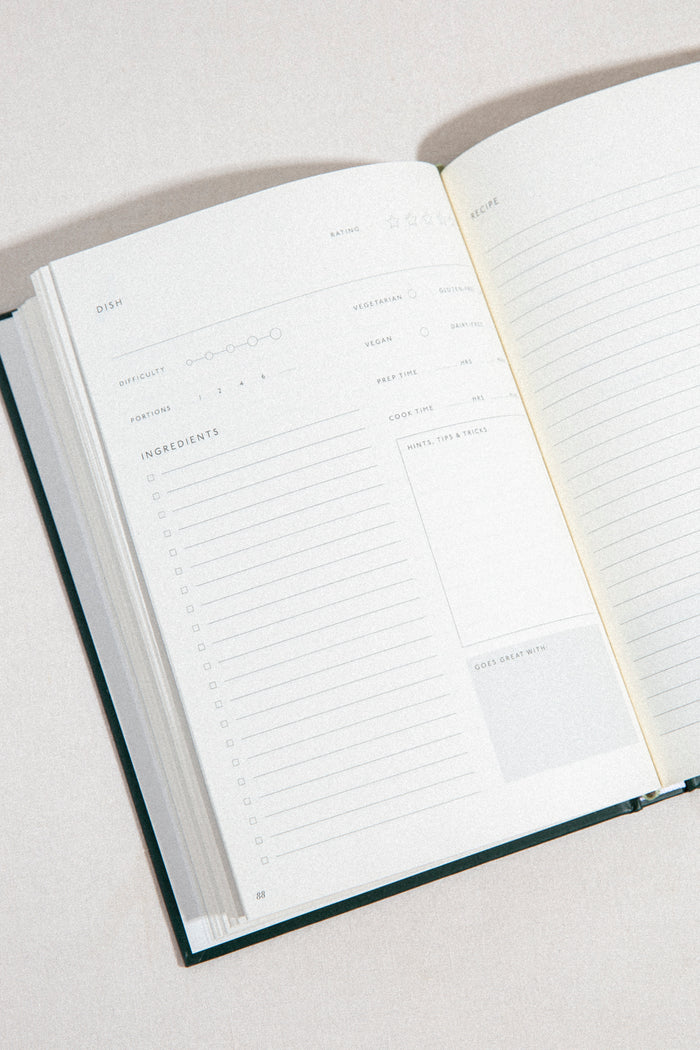 RATING
DISH
VEGETARIAN
GLUTEN-FREE
DIFFICULTY
VEGAN
DAIRY-FREE
PORTIONS 1 2 4 6
PREP TIME HRS
COOK TIME HRS
INGREDIENTS
HINTS, TIPS & TRICKS
GOES GREAT WITH:
88
RECIPE